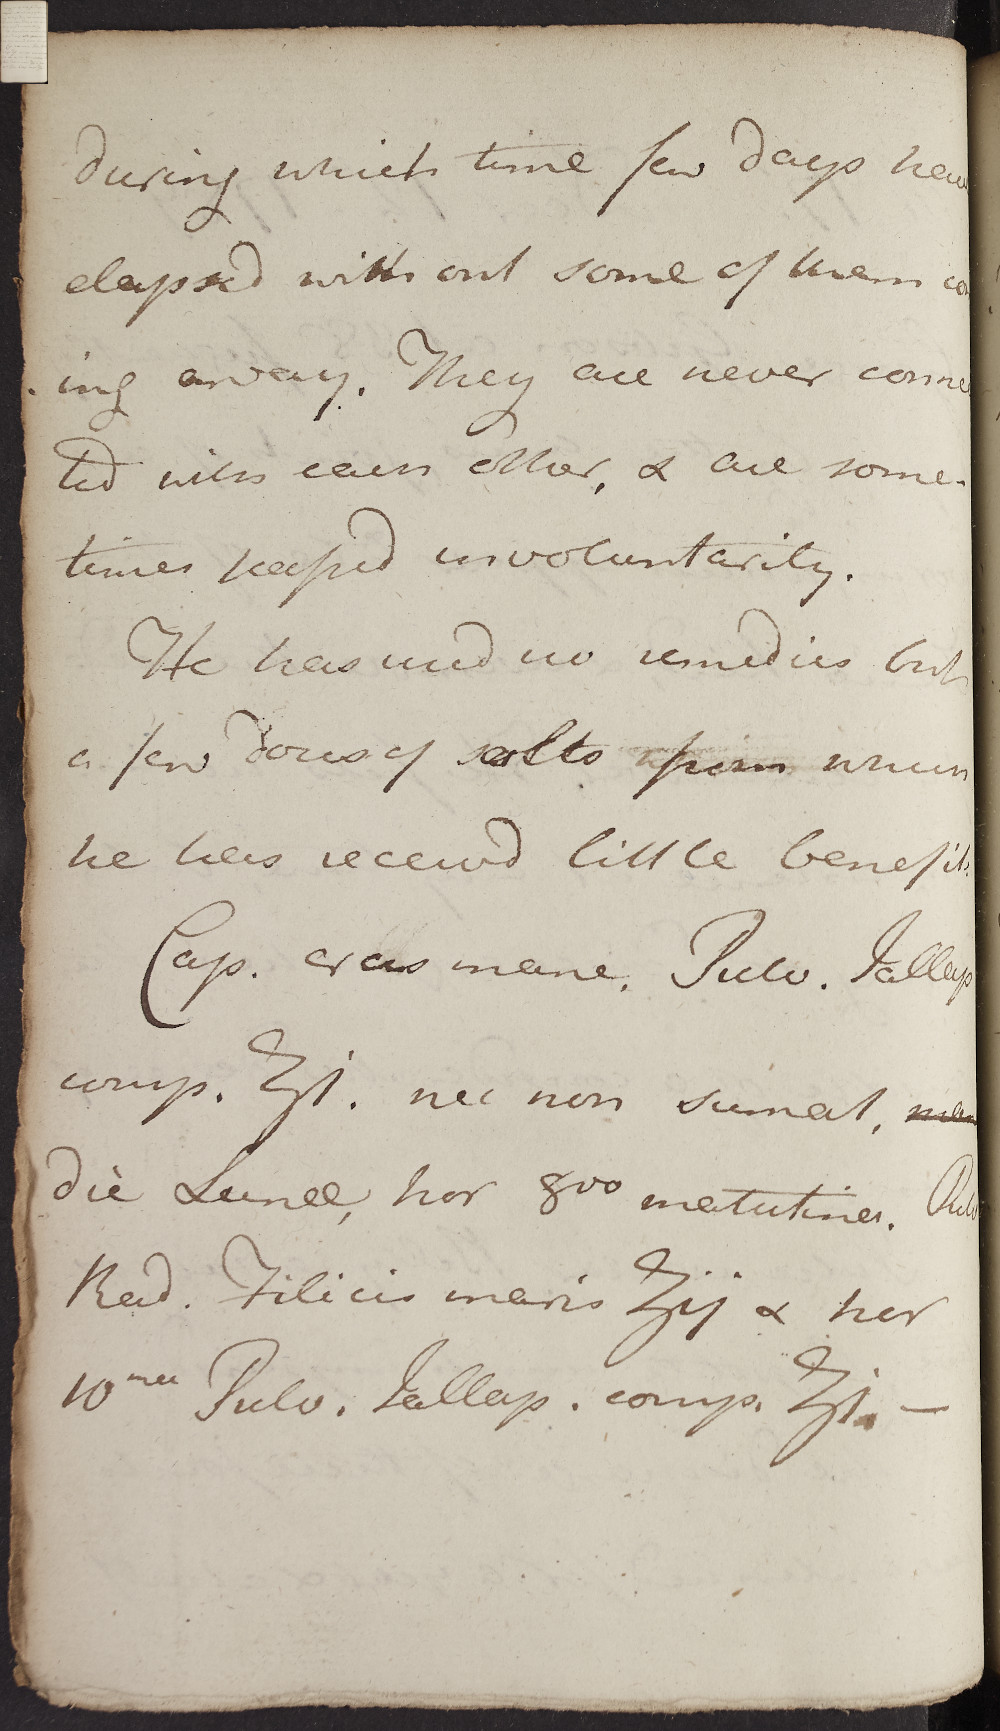 during which time few days have
elapsed without some of them com
ing away. They are never connec
ted with each other, & are some-
times passed involuntarily.
He has used no remedies but
a few doses of salts from which
he has receivd little benefit.
Cap. cras mane. Pulv. Jallap
comp. ʒi. nec non sumat,
die Lunæ, hor 8vo matutina. Pulv
Rad. Filicis maris ʒij & hor
10mæ Pulv. Jallap. comp. ʒi. —